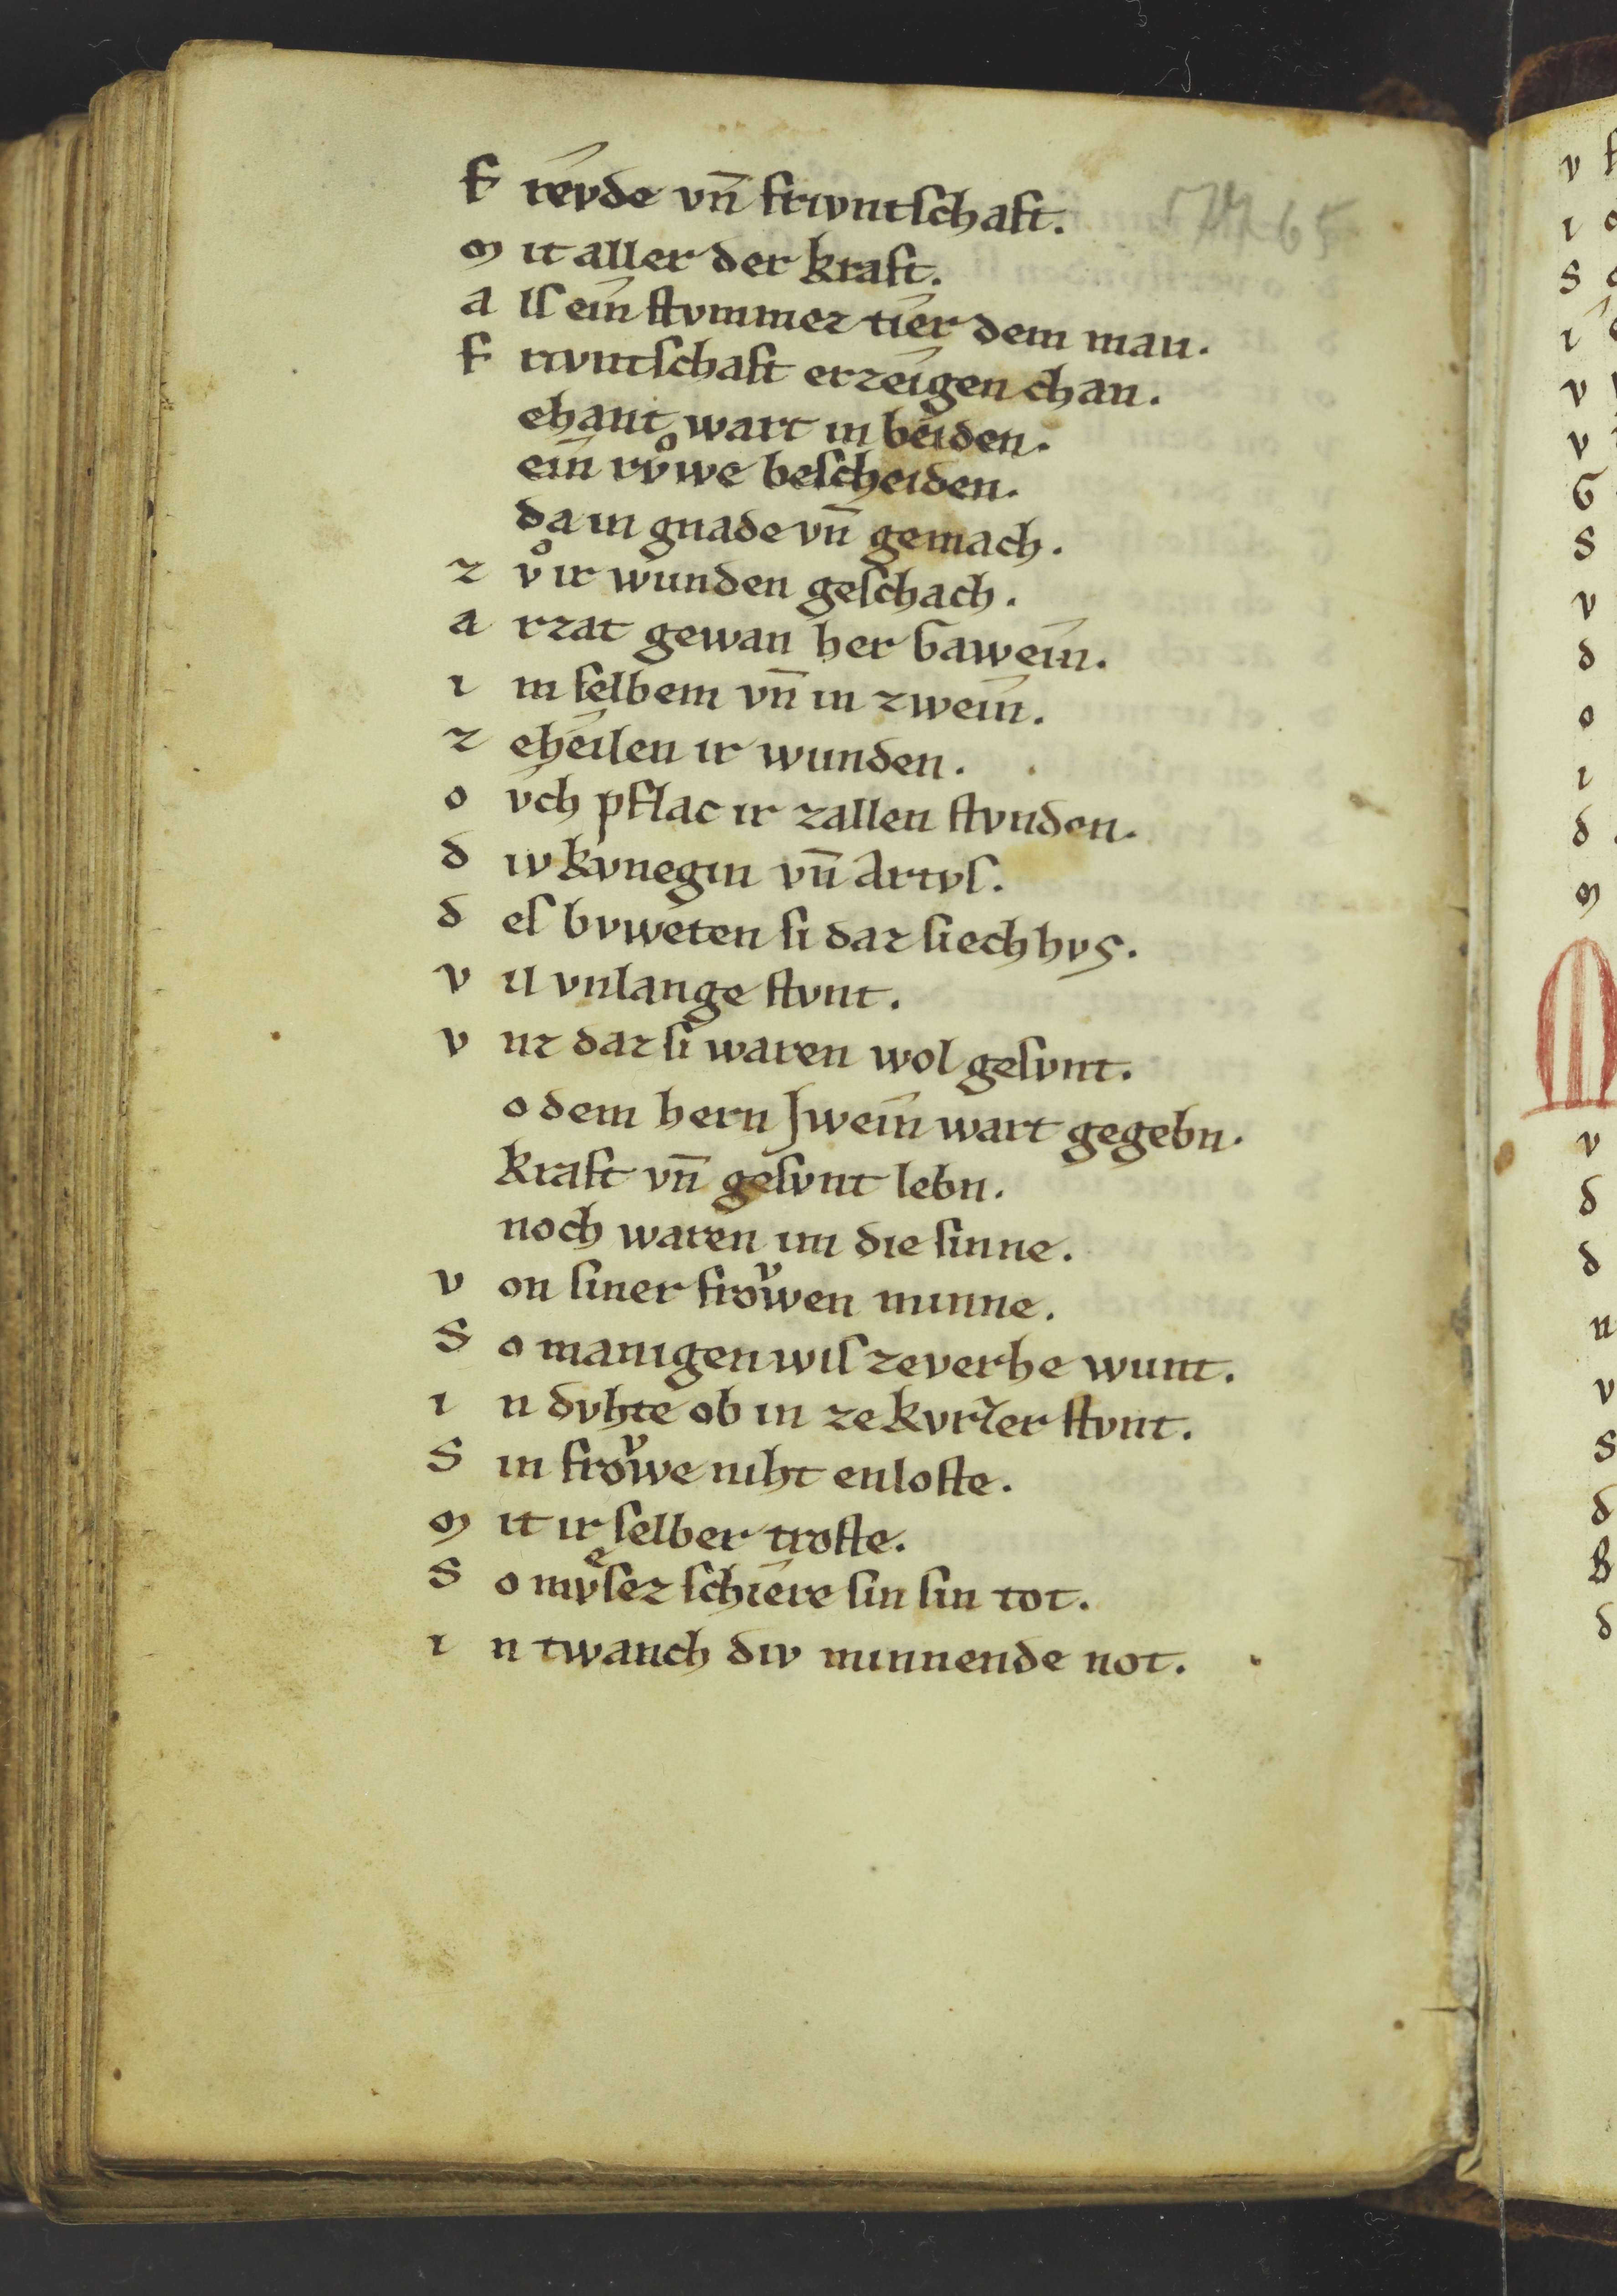 F revde vn̄ frivntschaft.
m it aller der kraft.
a ls ein stvmmez tier dem man.
F rivntschaft erzeigen chan.
ehant wart in beiden.
ein rvͦwe bescheiden.
da in gnade vn̄ gemach.
z vͦ ir wunden geschach.
a rzat gewan her Gawein.
i m selbem vn̄ in zwein.
z eheilen ir wunden.
o vch pflac ir zallen stvnden.
d iv kvnegin vn̄ Artvs.
d es bvweten si daz siechhvs.
v il vnlange stvnt.
v nz daz si waren wol gesvnt.
o dem hern Jwein wart gegebn.
kraft vn̄ gesvnt lebn.
noch waren im die sinne.
v on siner froͮwen minne.
S o manigen wis zeverhe wunt.
i n dvhte ob in ze kvrzer stvnt.
S in froͮwe niht enloste.
m it ir selber troste.
S o mvͤsez schiere sin sin tot.
i n twanch div minnende not.